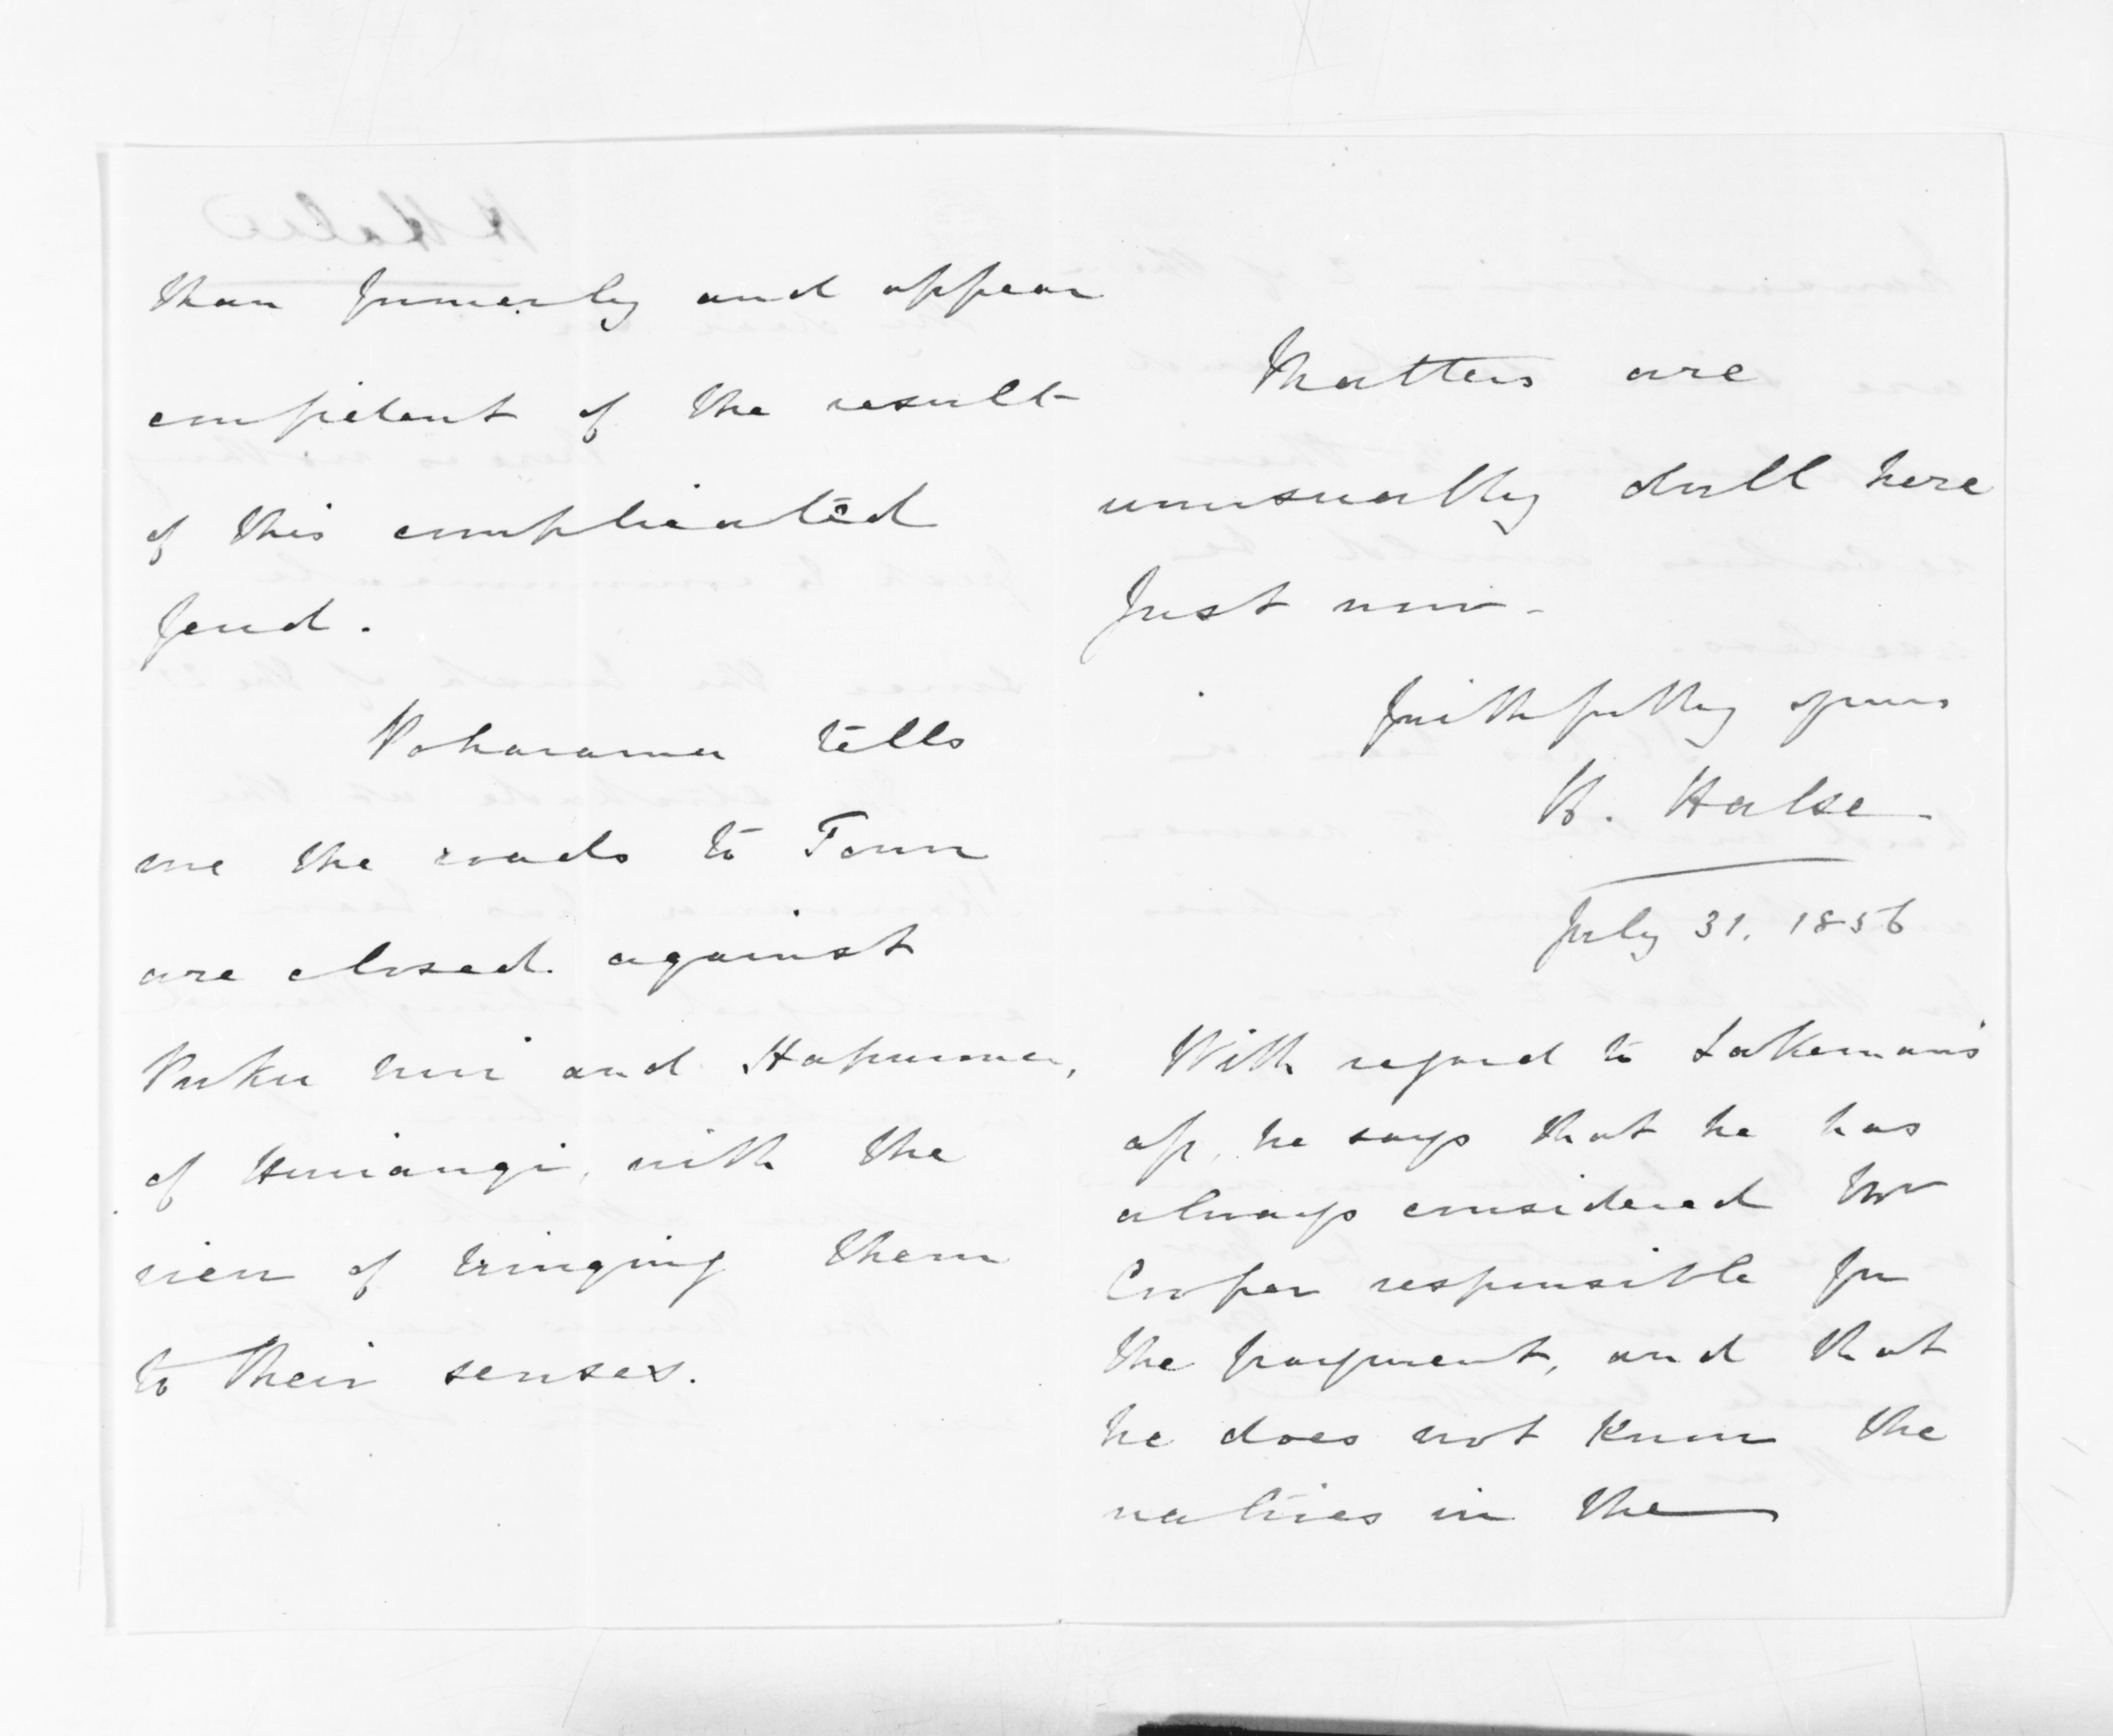 than formerly and appear
confident of the result
of this complicated
feud.
Poharama tells
me the roads to Town
are closed against
and
of Huirangi, with the
view of bringing them
to their senses.
Matters are
unusually dull here
just now -
faithfully yours
H. Halse
July 31. 1856
With regard to Lakeman's
he says that he has
always considered Mr
Cooper responsible for
the payment, and that
he does not know the
natives in the